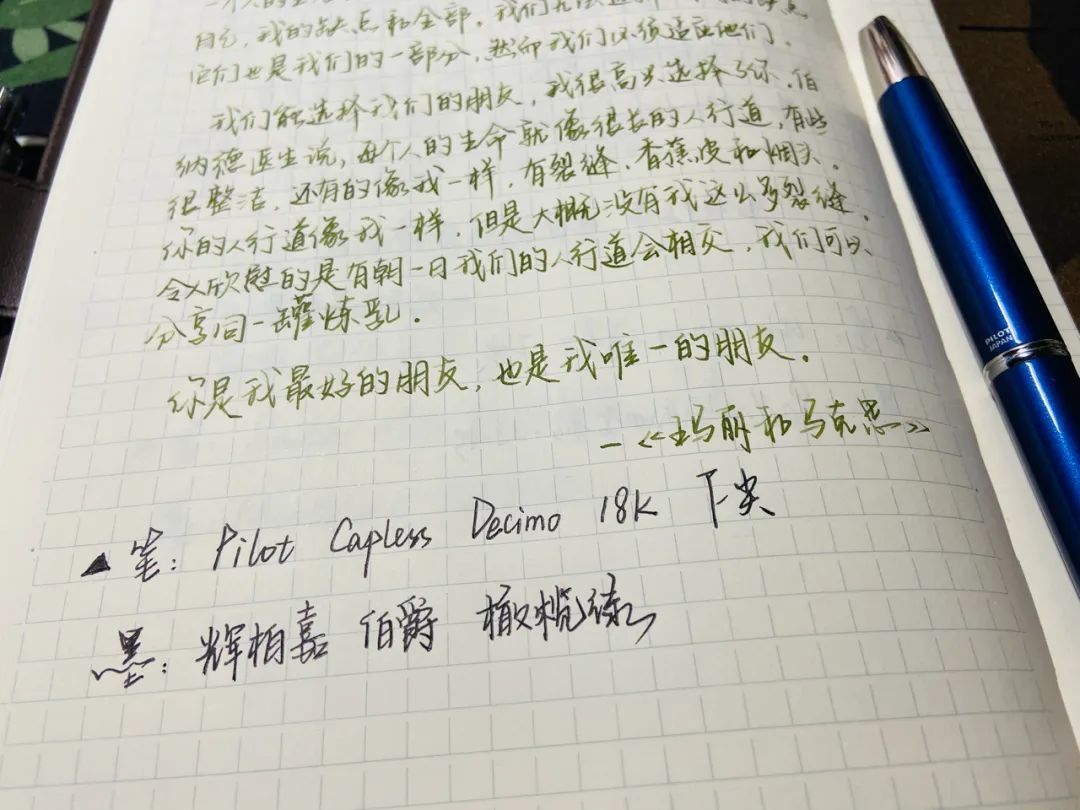 一个人的生
自己，我的缺点和全部，我们无法选择
它们也是我们的一部分，然而我们必须适应他们．
我们能选择我们的朋友，我很高兴选择了你．伯
纳德医生说，每个人的生命就像很长的人行道，有些
很整洁，还有的像我一样，有裂缝．香蕉皮和烟头．
你的人行道像我一样，但是大概没有我这么多裂缝．
令人欣慰的是有朝一日我们的人行道会相交，我们可以
分享同一罐炼乳．
你是我最好的朋友，也是我唯一的朋友．
—《玛丽和马克思》
▲ 笔：Pilot Capless Decimo 18K F尖
墨：辉柏嘉 伯爵 橄榄绿
PILOT
JAPAN